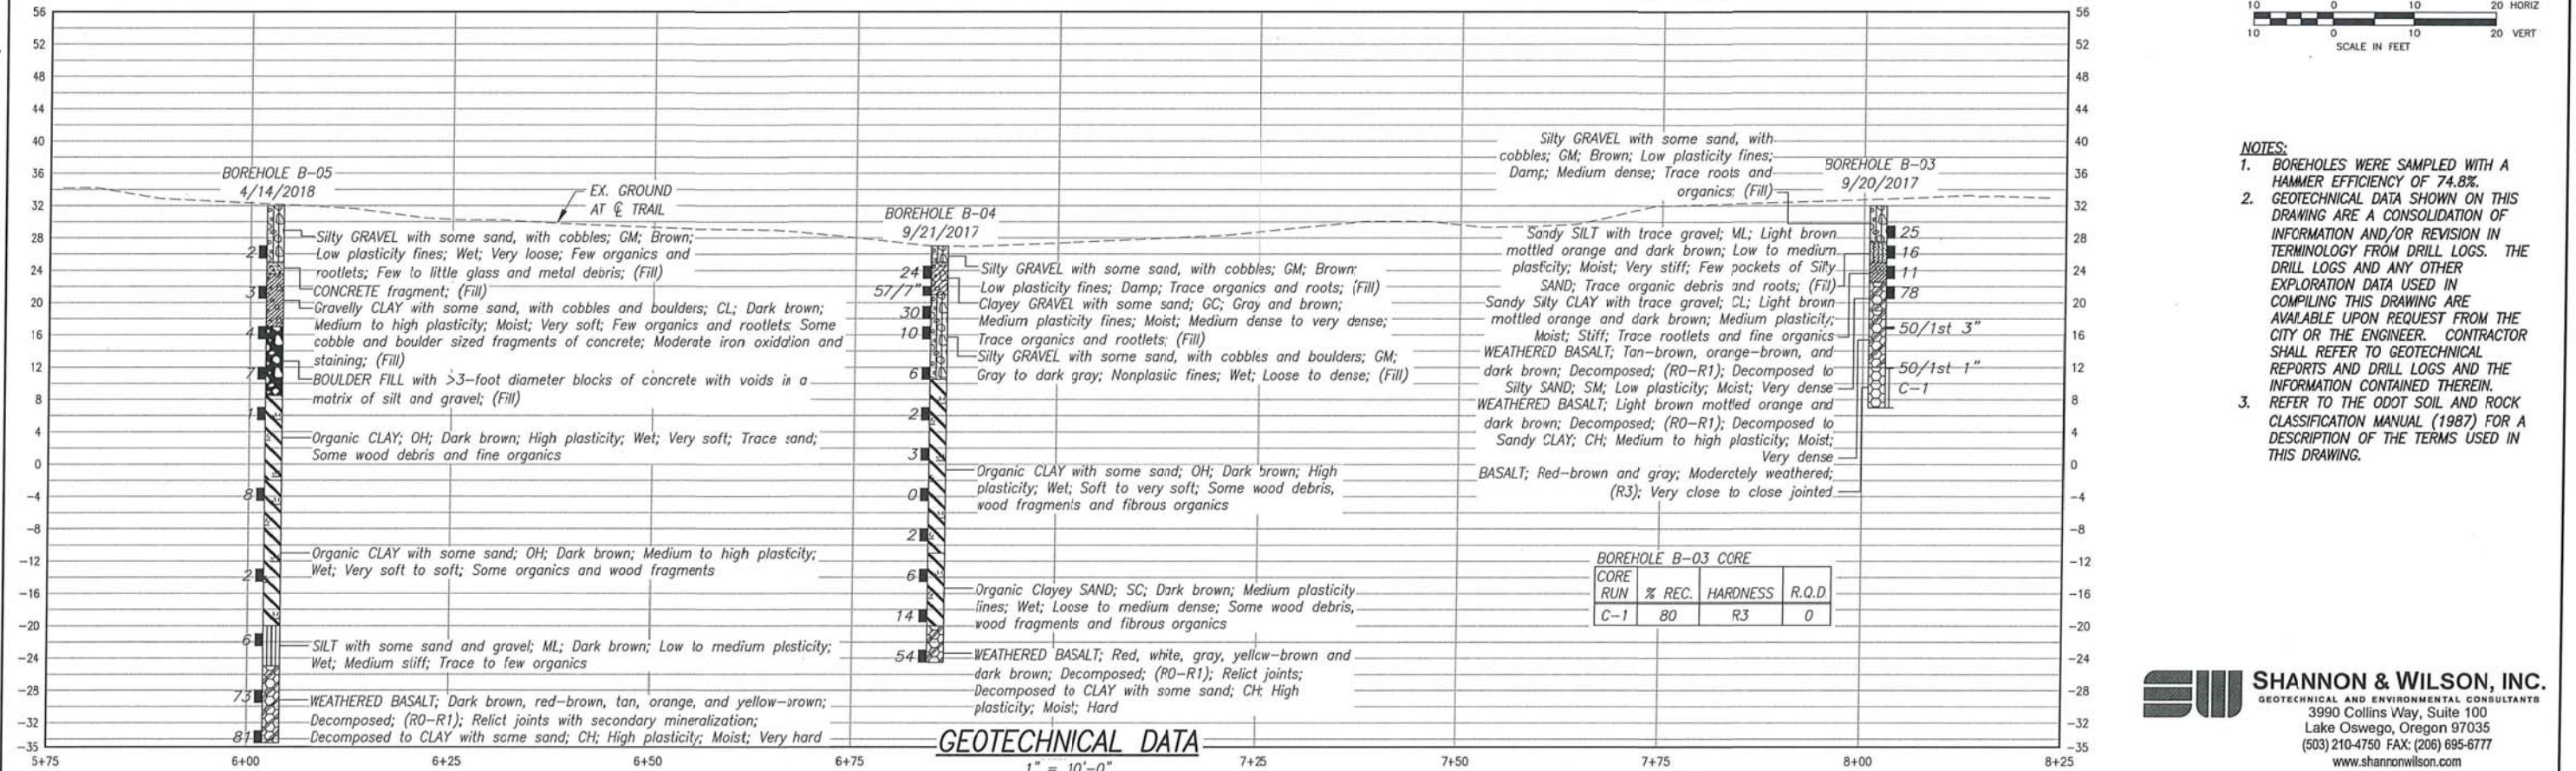 56
52
48
44
40
36
32
28
24
20
16
12
8
4
0
-4
-8
-12
-16
-20
-24
-28
-32
-35
BOREHOLE B-05
4/14/2018
2
3
4
7
1
8
2
6
73
81
Silty GRAVEL with some sand, with cobbles; GM; Brown;
Low plasticity fines; Wet; Very loose; Few organics and
rootlets; Few to little glass and metal debris; (Fill)
CONCRETE fragment; (Fill)
Gravelly CLAY with some sand, with cobbles and boulders; CL; Dark brown;
Medium to high plasticity; Moist; Very soft; Few organics and rootlets; Some
cobble and boulder sized fragments of concrete; Moderate iron oxidation and
staining; (Fill)
BOULDER FILL with >3-foot diameter blocks of concrete with voids in a
matrix of silt and gravel; (Fill)
Organic CLAY; OH; Dark brown; High plasticity; Wet; Very soft; Trace sand;
Some wood debris and fine organics
Organic CLAY with some sand; OH; Dark brown; Medium to high plasticity;
Wet; Very soft to soft; Some organics and wood fragments
SILT with some sand and gravel; ML; Dark brown; Low to medium plasticity;
Wet; Medium stiff; Trace to few organics
WEATHERED BASALT; Dark brown, red-brown, tan, orange, and yellow-brown;
Decomposed; (R0-R1); Relict joints with secondary mineralization;
Decomposed to CLAY with some sand; CH; High plasticity; Moist; Very hard
EX. GROUND
AT ℄ TRAIL
BOREHOLE B-04
9/21/2017
24
57/7"
30
10
6
2
3
0
2
6
14
54
Silty GRAVEL with some sand, with cobbles; GM; Brown;
Low plasticity fines; Damp; Trace organics and roots; (Fill)
Clayey GRAVEL with some sand; GC; Gray and brown;
Medium plasticity fines; Moist; Medium dense to very dense;
Trace organics and rootlets; (Fill)
Silty GRAVEL with some sand, with cobbles and boulders; GM;
Gray to dark gray; Nonplastic fines; Wet; Loose to dense; (Fill)
Organic CLAY with some sand; OH; Dark brown; High
plasticity; Wet; Soft to very soft; Some wood debris,
wood fragments and fibrous organics
Organic Clayey SAND; SC; Dark brown; Medium plasticity
fines; Wet; Loose to medium dense; Some wood debris,
wood fragments and fibrous organics
WEATHERED BASALT; Red, white, gray, yellow-brown and
dark brown; Decomposed; (R0-R1); Relict joints;
Decomposed to CLAY with some sand; CH; High
plasticity; Moist; Hard
Silty GRAVEL with some sand, with
cobbles; GM; Brown; Low plasticity fines;
Damp; Medium dense; Trace roots and
organics; (Fill)
Sandy SILT with trace gravel; ML; Light brown
mottled orange and dark brown; Low to medium
plasticity; Moist; Very stiff; Few pockets of Silty
SAND; Trace organic debris and roots; (Fill)
Sandy Silty CLAY with trace gravel; CL; Light brown
mottled orange and dark brown; Medium plasticity;
Moist; Stiff; Trace rootlets and fine organics
WEATHERED BASALT; Tan-brown, orange-brown, and
dark brown; Decomposed; (R0-R1); Decomposed to
Silty SAND; SM; Low plasticity; Moist; Very dense
WEATHERED BASALT; Light brown mottled orange and
dark brown; Decomposed; (R0-R1); Decomposed to
Sandy CLAY; CH; Medium to high plasticity; Moist;
Very dense
BASALT; Red-brown and gray; Moderately weathered;
(R3); Very close to close jointed
BOREHOLE B-03
9/20/2017
25
16
11
78
50/1st 3"
50/1st 1"
C-1
BOREHOLE B-03 CORE
CORE
RUN % REC. HARDNESS R.Q.D.
C-1 80 R3 0
56
52
48
44
40
36
32
28
24
20
16
12
8
4
0
-4
-8
-12
-16
-20
-24
-28
-32
-35
5+75 6+00 6+25 6+50 6+75 7+25 7+50 7+75 8+00 8+25
GEOTECHNICAL DATA
1" = 10'-0"
10 0 10 20 HORIZ
10 0 10 20 VERT
SCALE IN FEET
NOTES:
1. BOREHOLES WERE SAMPLED WITH A
HAMMER EFFICIENCY OF 74.8%.
2. GEOTECHNICAL DATA SHOWN ON THIS
DRAWING ARE A CONSOLIDATION OF
INFORMATION AND/OR REVISION IN
TERMINOLOGY FROM DRILL LOGS. THE
DRILL LOGS AND ANY OTHER
EXPLORATION DATA USED IN
COMPILING THIS DRAWING ARE
AVAILABLE UPON REQUEST FROM THE
CITY OR THE ENGINEER. CONTRACTOR
SHALL REFER TO GEOTECHNICAL
REPORTS AND DRILL LOGS AND THE
INFORMATION CONTAINED THEREIN.
3. REFER TO THE ODOT SOIL AND ROCK
CLASSIFICATION MANUAL (1987) FOR A
DESCRIPTION OF THE TERMS USED IN
THIS DRAWING.
SHANNON & WILSON, INC.
GEOTECHNICAL AND ENVIRONMENTAL CONSULTANTS
3990 Collins Way, Suite 100
Lake Oswego, Oregon 97035
(503) 210-4750 FAX: (206) 695-6777
www.shannonwilson.com